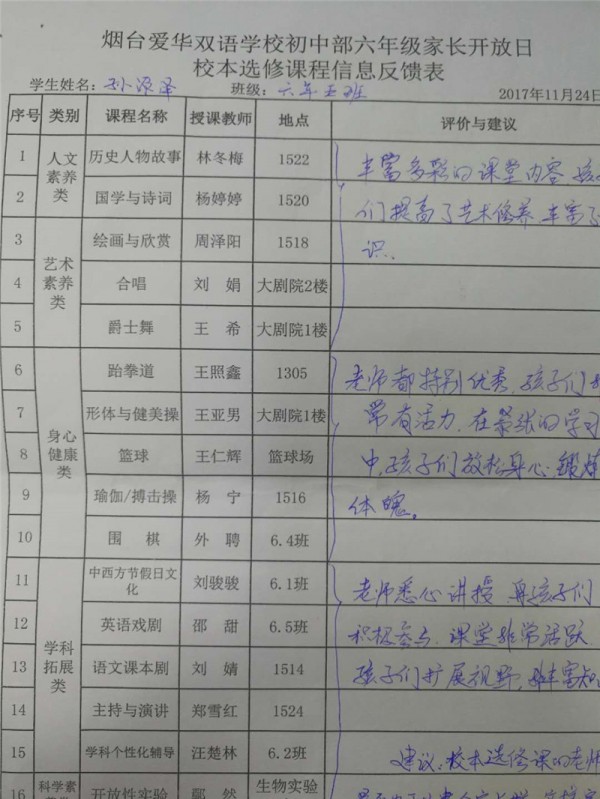 烟台爱华双语学校初中部六年级家长开放日
校本选修课程信息反馈表
学生姓名: 孙源泽 班级: 六年五班 2017年11月24日
序号 类别 课程名称 授课教师 地点 评价与建议
1 人文素养类 历史人物故事 林冬梅 1522 丰富多彩的课堂内容,孩
2 国学与诗词 杨婷婷 1520 们提高了艺术修养,丰富了
3 艺术素养类 绘画与欣赏 周泽阳 1518 识.
4 合唱 刘 娟 大剧院2楼
5 爵士舞 王 希 大剧院1楼
6 身心健康类 跆拳道 王照鑫 1305 老师都特别优秀,孩子们
7 形体与健美操 王亚男 大剧院1楼 常有活力,在紧张的学习
8 篮球 王仁辉 篮球场 中孩子们放松身心,锻炼
9 瑜伽/搏击操 杨 宁 1516 体魄。
10 围 棋 外 聘 6.4班
11 学科拓展类 中西方节假日文化 刘骏骏 6.1班 老师悉心讲授,孩子们
12 英语戏剧 邵 甜 6.5班 积极参与,课堂非常活跃
13 语文课本剧 刘 婧 1514 孩子们扩展视野,丰富知
14 主持与演讲 郑雪红 1524
15 学科个性化辅导 汪楚林 6.2班 建议:校本选修课的老师
16 科学素 开放性实验 鄢 然 生物实验